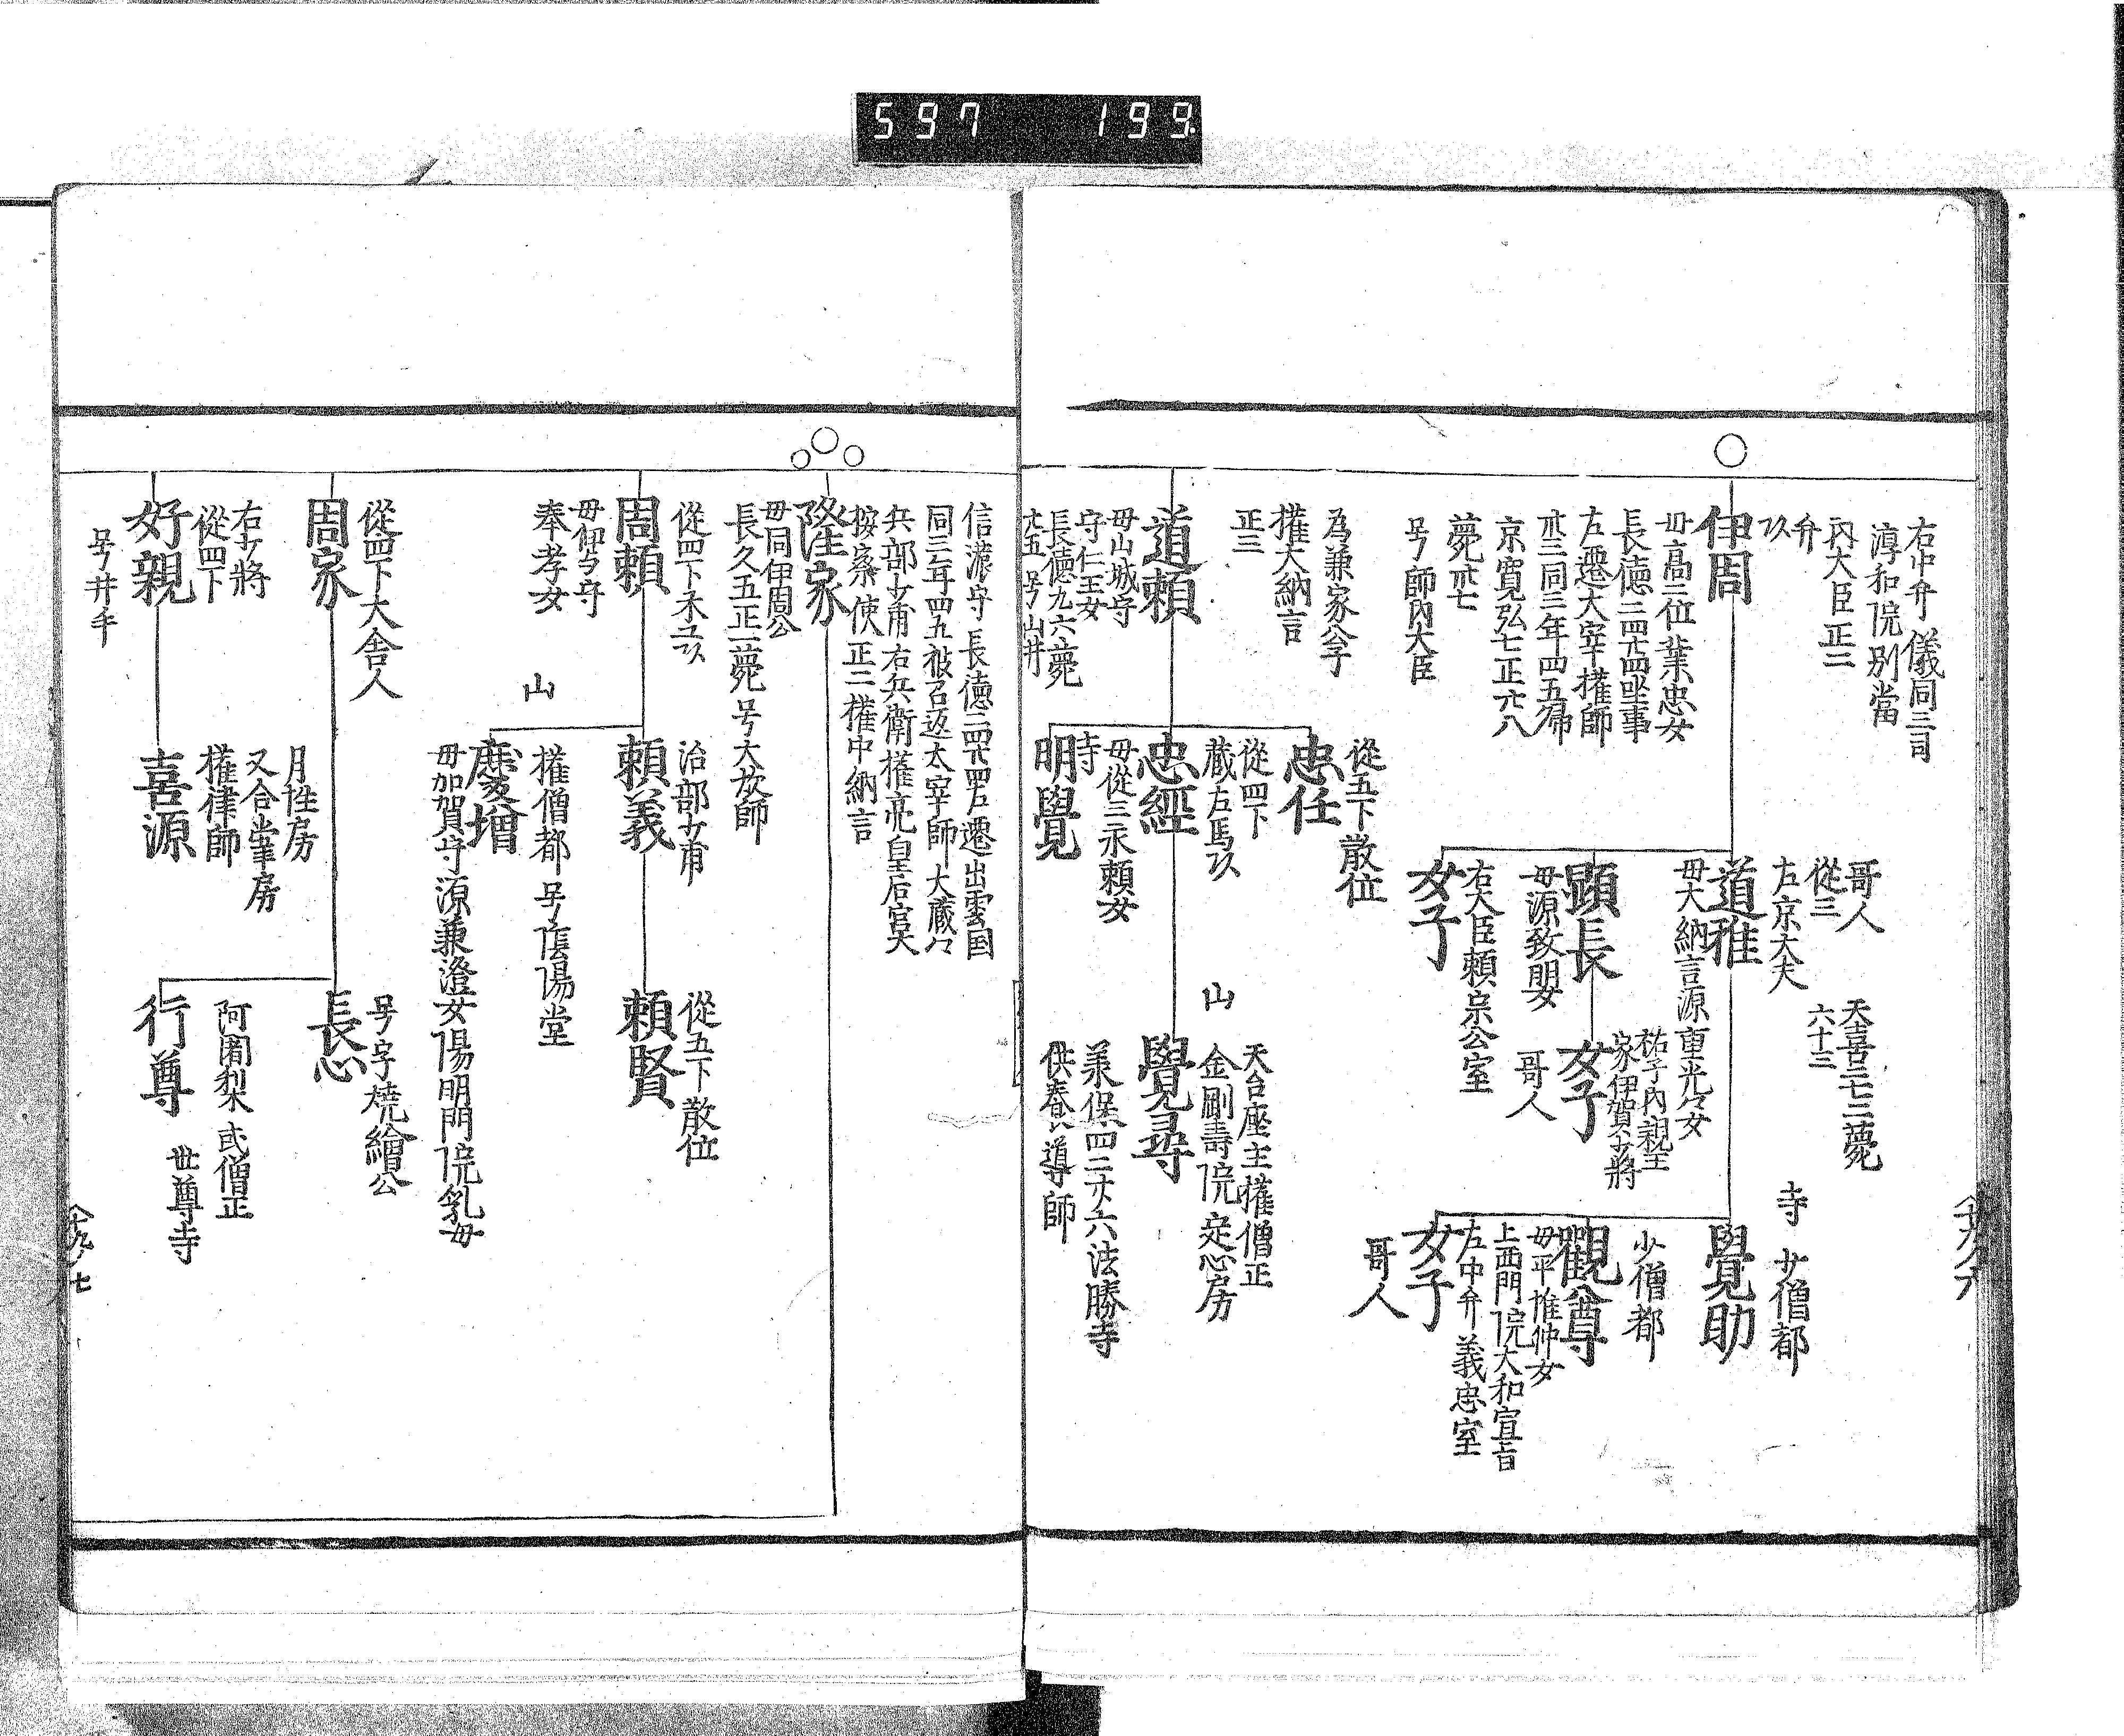 597 199
右中弁 儀同三司
淳和院別當
内大臣正二
弁
伊周
母高二位業忠女
長徳二四廿四坐事
左遷大宰権師
三同三年四五帰
京寛弘七正廿八
薨卅七
号師内大臣
哥人
從三
左京大夫
天喜二七二薨
六十三
道雅
母大納言源重光々女
顕長
母源致明女
祐子内親王
家伊賀少將
女子
哥人
右大臣頼宗公室
女子
寺 少僧都
覺助
少僧都
觀尊
母平惟仲女
上西門院大和宣旨
左中弁義忠室
女子
哥人
為兼家公子
権大納言
正三
道頼
母山城守
守仁王女
長徳九六薨
廿五 号山井
從五下散位
忠任
從四下
蔵左馬
忠經
母從三永頼女
寺
明覺
山
天台座主権僧正
金剛壽院 定心房
覺尋
兼保四二六法勝寺
供養導師
信濃守 長徳二四廿四左遷出雲国
同三年四五被召返太宰師大蔵々
兵部少甫右兵衛権亮皇后宮大
按察使正二権中納言
隆家
母同伊周公
長久五正一薨 号大炊師
從四下木工
周頼
母伊与守
奉孝女
治部少甫
頼義
從五下散位
頼賢
山
権僧都 号陰陽堂
慶増
母加賀守源兼澄女陽明門院乳母
從四下大舎人
周家
号字焼繪公
長心
阿闍梨 或僧正
行尊
世尊寺
右少將
從四下
好親
号井手
月性房
又合掌房
権律師
喜源
十九ノ七